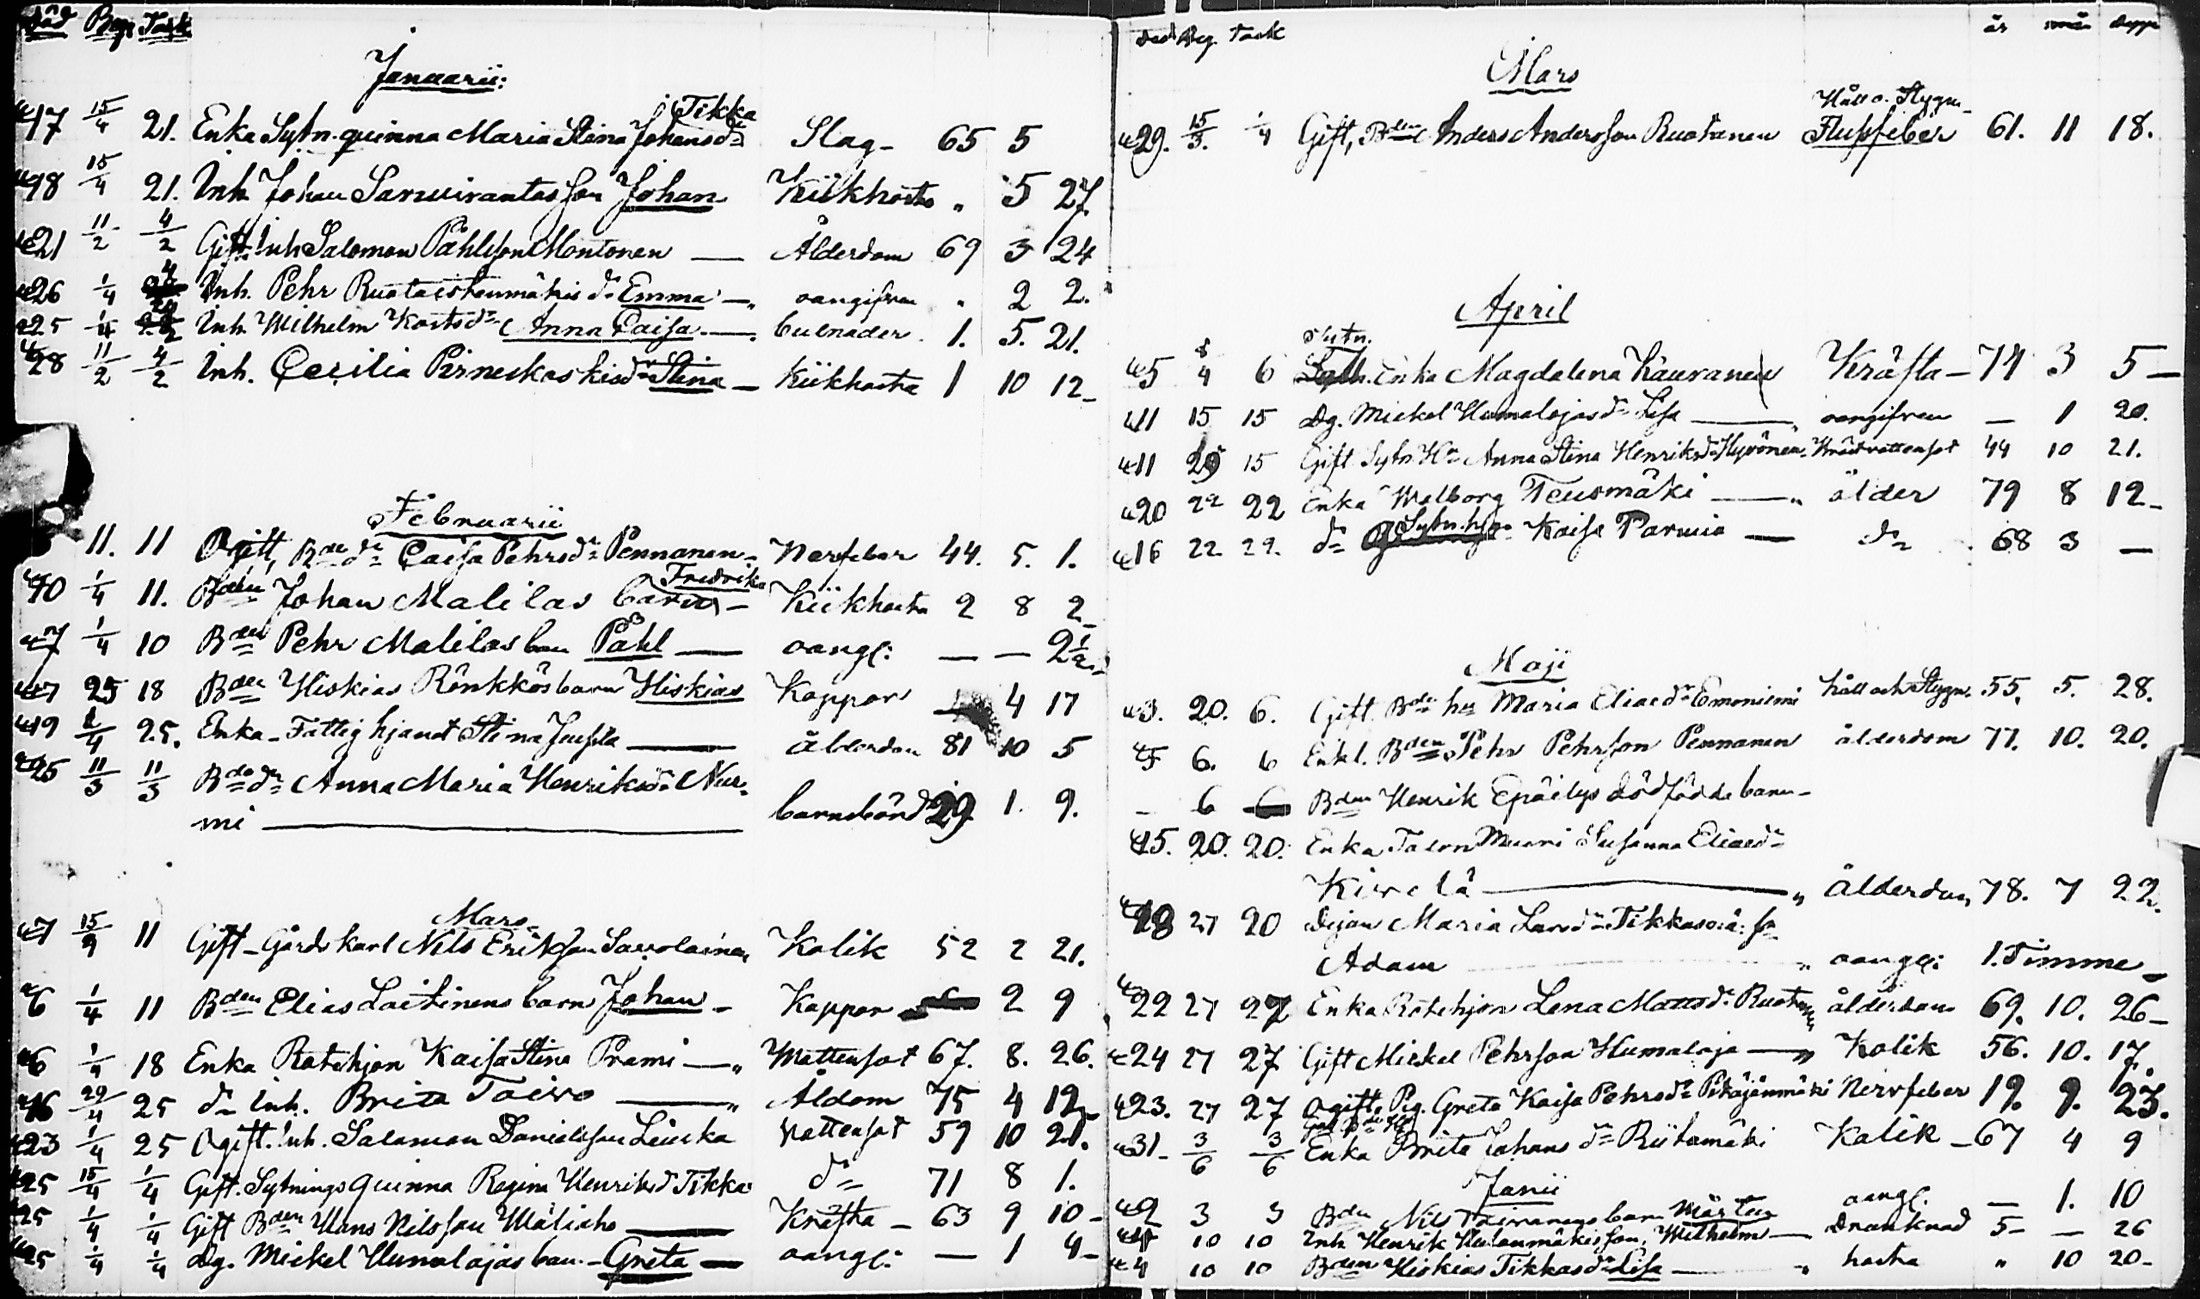 Död Begr Tack
Januarii:
Tikka
17 15/4 21. Enka Sytn. quinna Maria Stina Johansdr Slag - 65 5
18 15/4 21. Inh. Johan Sarvirantas son Johan Kikhosta " 5 27.
21 11/2 4/2 Gift Inh Salomon Påhlsson Montonen — Ålderdom 69 3 24
26 1/4 Inh. Pehr dr Emma — oangifven " 2 2.
25 1/4 Inh. Wilhelm dr Anna Caisa — bulnader 1. 5. 21.
28 11/2 4/2 Inh. Cecilia dr Stina — Kikhosta 1 10 12 -
Februarii
11. 11 Ogift, Bdedr Caisa Pehrsdr Pennanen - Nerfeber 44. 5. 1.
Fredrika
10 1/4 11. Bden Johan Malilas barn - Kikhosta 2 8 2 -
7 1/4 10 Bden Pehr Malilas barn Påhl — oangf: — — 2 1/2
17 25 18 Bden Hiskias Rönkkös barn Hiskias Koppor 4 17
19 1/4 25. Enka - Fattighjonet Stina — Ålderdom 81 10 5
25 11/3 11/3 Bdedr Anna Maria Henriksdr Nur-
mi — barnsbörd 29 1. 9.
Mars
7 15/9 11 Gift - Gårdskarl Nils Eriksson Savolainen Kolik 52 2 21.
6 1/4 11 Bden Elias Laitinens barn Johan - Koppor 2 9
6 1/4 18 Enka Rotehjon Kaisa Stina Prami — " Wattensot 67. 8. 26.
16 29/4 25 dr Inh. Brita Toivo — " Åldom 75 4 12 -
23 1/4 25 Ogift. Inh. Salomon Danielsson Vattensot 59 10 21.
25 15/4 1/4 Gift. Sytningsquinna Regina Henriksd Tikka do 71 8 1.
25 1/4 1/4 Gift Bden Hans Nilsson Mäliaho — Kräfta - 63 9 10 -
25 1/4 1/4 Dg. Mickel Humalajas barn - Greta — oangf: — 1 4 -
Död Beg. Tack år mån dagar
Mars
Håll o. Stygn
29. 15/3. 1/4 Gift, Bden Anders Andersson Ruotanen Flussfeber 61. 11 18.
April
Sytn.
5 8/4 6 Enka Magdalena Kauranen Kräfta - 74 3 5 —
11 15 15 Dg. Mickel Humalojas dr Lisa — " oangifven — 1 20.
11 29 15 Gift Sytn Hu Anna Stina Henriksdr Hyvönen 44 10 21.
20 22 22 Enka Walborg Teusmäki — " ålder 79 8 12 -
16 22 22. do Sytn. hjon Kaisa Parvia — do 68 3 —
Maji
3. 20. 6. Gift. Bde hu Maria Eliaedr Emoniemi håll och Stygn. 55. 5. 28.
5 6. 6 Enkl. Bden Pehr Pehrsson Pennanen ålderdom 77. 10. 20.
— 6 Bden Henrik Epäilys dödfödde barn -
15. 20. 20. Enka Susanna Eliaedr
Kivelä — " Ålderdom 78. 7 22.
18 27 20 Dejan Maria Larsdr Tikkas oä: so
Adam " oangf: 1. Timme -
22 27 27 Enka Rotehjon Lena Mattsdr Ruotanen ålderdom 69. 10. 26 -
24 27 27 Gift Mickel Pehrsson Humaloja — " Kolik 56. 10. 17.
23. 27 27 Ogift, Pig. Greta Kaisa Pehrsdr Pitkäjänmäki Nervfeber 19. 9. 23.
31 - 3/6 3/6 Enka Brita Johansdr Riitamäki Kolik - 67 4 9
Junii
2 3 3 Bden Nils barn Mårten oangf. — 1. 10
4 10 10 Inh Henrik son Wilhelm — Drunknad 5 - — 26
4 10 10 Bden Hiskias Tikkas dr Lisa — " hosta " 10 20 -